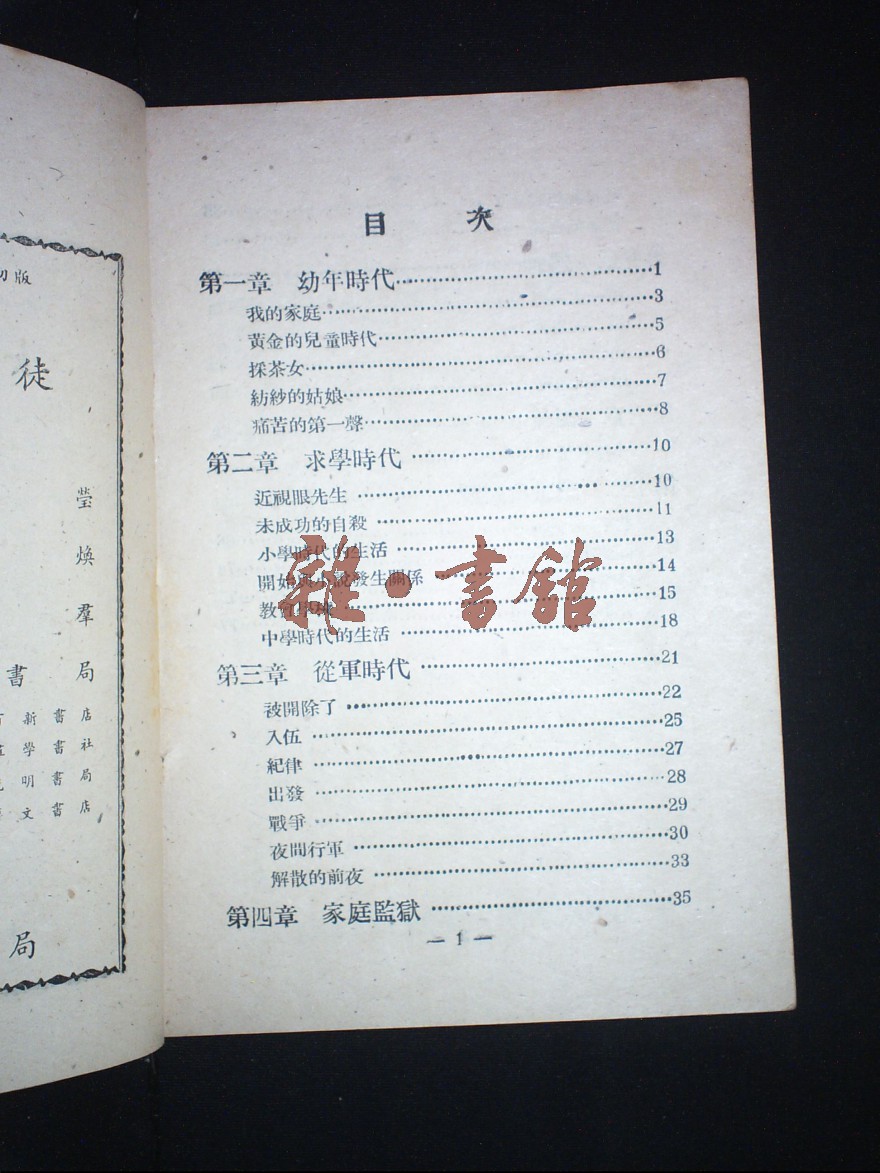 目 次
第一章 幼年時代……1
我的家庭……3
黃金的兒童時代……5
採茶女……6
紡紗的姑娘……7
痛苦的第一聲……8
第二章 求學時代……10
近視眼先生……10
未成功的自殺……11
小學時代的生活……13
開始與小說發生關係……14
教會學校……15
中學時代的生活……18
第三章 從軍時代……21
被開除了……22
入伍……25
紀律……27
出發……28
戰爭……29
夜間行軍……30
解散的前夜……33
第四章 家庭監獄……35
— 1 —
雜·書館
初版
徒
瑩
煥
羣
書局
新書店
學書社
明書局
文書店
局